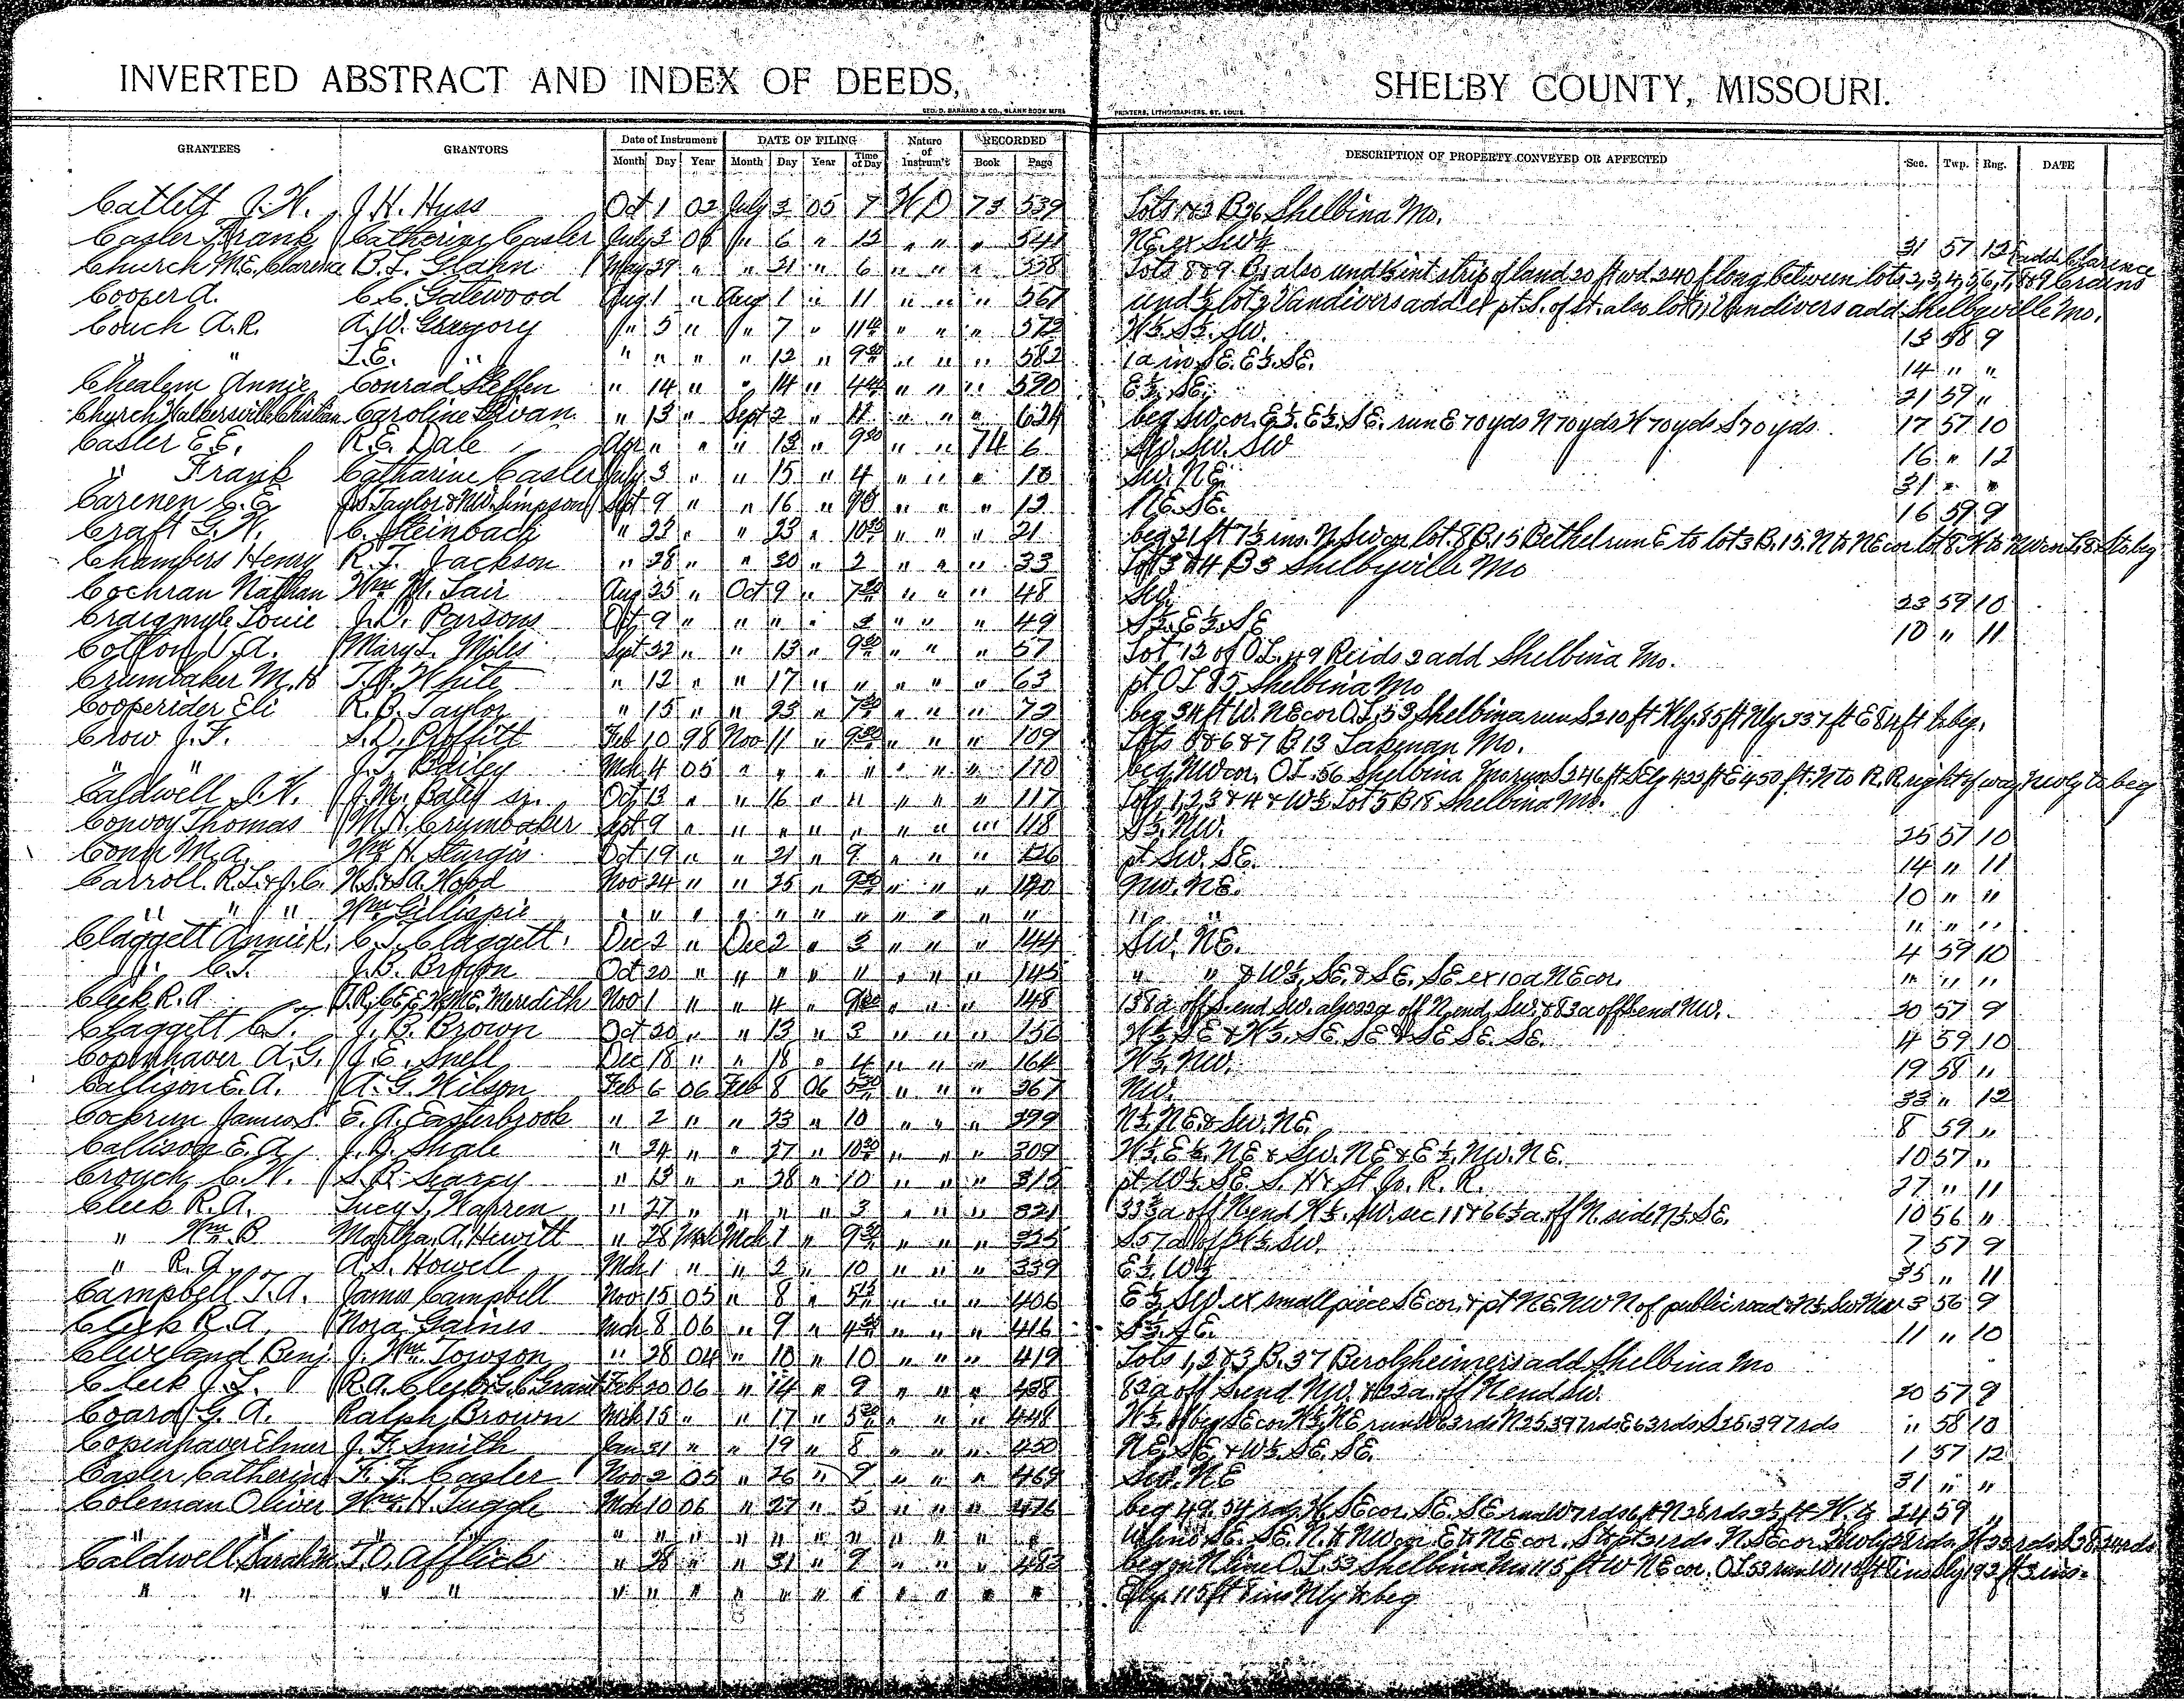 INVERTED ABSTRACT AND INDEX OF DEEDS, SHELBY COUNTY, MISSOURI.
GEO. D. BARNARD & CO., BLANK BOOK MFRS PRINTERS, LITHOGRAPHERS, ST. LOUIS
GRANTEES GRANTORS Date of Instrument DATE OF FILING Nature of Instrum't RECORDED DESCRIPTION OF PROPERTY CONVEYED OR AFFECTED Sec. Twp. Rng. DATE
Month Day Year Month Day Year Time of Day Book Page
Catlett J.W. J.H. Hyss Oct 1 02 July 3 05 7 WD 73 539 Lots 1&2 B26 Shelbina Mo.
Casler Frank Catherine Casler July 3 05 " 6 " 13 " " " 541 NE. ex SW¼ 31 57 12
Church M.E. Clarence B.L. Glahn May 29 " " 21 " 6 " " " 558 Lots 8&9 B1 also und ½ int strip of land 20 ft wd 240 f long between lots 2,3,4,5,6,7,8&9 Crains E add Clarence
Cooper A. C.C. Gatewood Aug 1 " Aug 1 " 11 " " " 567 und ½ lot 2 Vandivers add ex pt. S. of st. also lot 11 Vandivers add Shelbyville Mo.
Couch A.R. A.W. Gregory " 5 " " 7 " 11 " " " 572 W½. S½. SW. 13 58 9
" " L.E. " " " " " 12 " 9 30 " " " 582 1a in SE. E½. SE. 14 " "
Chealem Annie Conrad Steffen " 14 " " 14 " " " " 590 E½. SE. 21 59 "
Church Walkersville Christian Caroline " 13 " Sept 2 " 11 " " " 624 beg SW cor. E½. E½. SE. run E 70 yds N 70 yds W 70 yds S 70 yds 17 57 10
Casler E.E. R.E. Dale Apr " " " 13 " 9 30 " " 74 6 SW. SW. SW 16 " 12
" Frank Catharine Casler July 3 " " 15 " 4 " " " 10 SW. NE. 31 " "
Carenen C.E. J.S. Taylor & M.W. Simpson Sept 9 " " 16 " " " " 12 NE. SE. 16 59 9
Craft G.W. C. Steinbach " 23 " " 23 " 10 30 " " " 21 beg 21 ft 7½ ins. N. SW cor lot. 8 B. 15 Bethel run E to lot 3 B. 15. N to NE cor lot 8. W to NW cor L. 8 S to beg
Chambers Henry R.T. Jackson " 28 " " 30 " 2 " " " 33 Lot 3 & 4 B 3 Shelbyville Mo
Cochran Nathan Wm M. Lair Aug 25 " Oct 9 " 7 30 " " " 48 SW. 23 59 10
Craigmyle Louie J.D. Parsons Oct 9 " " " " 3 " " " 49 S½. E½. SE 10 " 11
Cotton V.A. Mary L. Miles Sept 22 " " 13 " 9 30 " " " 57 Lot 12 of O.L. 49 Reids 2 add Shelbina Mo.
Crumbaker M.H T.B. White " 12 " " 17 " " " " " 63 pt OL 85 Shelbina Mo
Cooperider Eli R.B. Taylor " 15 " " 23 " 7 30 " " " 72 beg 34 ft W. NE cor O.L. 53 Shelbina run S 210 ft Wly. 85 ft Nly. 337 ft E 84 ft to beg.
Crow J.F. S.D. Proffitt Feb 10 98 Nov 11 " 9 30 " " " 109 Lots 5&6&7 B 13 Lakenan Mo.
" " J.T. Bailey Mch 4 05 " " " " " " " 110 beg NW cor. OL. 56 Shelbina Mo run S 246 ft SEly 422 ft E 450 ft. N to R.R. right of way NWly to beg
Caldwell J.W. J.M. Baley sr. Oct 13 " " 16 " 11 " " " 117 Lots 1, 2, 3 & 4 & W½ Lot 5 B 18 Shelbina Mo.
Convoy Thomas M.H. Crumbaker Sept 9 " " " " " " " " 118 S½. NW. 25 57 10
Conn M.A. Wm H. Sturgis Oct 19 " " 21 " 9 " " " 126 pt SW. SE. 14 " 11
Carroll. R.L. & J.C. W.S. & S.A. Wood Nov 24 " " 25 " 9 30 " " " 130 NW. NE. 10 " "
" " " Wm Gillispie " " " " " " " " " " " " " " " "
Claggett Annie K. C.T. Claggett. Dec 2 " Dec 2 " 3 " " " 144 SW. NE. 4 59 10
" C.T. J.B. Brown Oct 20 " " " " " " " " 145 " " & W½. SE. & SE. SE ex 10a NE cor. " " "
Cleek R.A. J.R. C.E.E. W. M.E. Meredith Nov 1 " " 4 " 9 30 " " " 148 138a off S. end SW. also 22a off N. end SW. & 83a off S. end NW. 20 57 9
Claggett C.T. J.B. Brown Oct 20 " " 13 " 3 " " " 156 W½. SE & W½. SE. SE & SE SE. SE. 4 59 10
Copenhaver A.G. J.E. Snell Dec 18 " " 18 " 4 " " " 164 W½. NW. 19 58 "
Callison E.A. A.G. Wilson Feb 6 06 Feb 8 06 5 30 " " " 267 NW. 33 " 12
Cochrun James S. E.A. Easterbrook " 2 " " 23 " 10 " " " 299 N½. NE & SW. NE. 8 59 "
Callison E.A. J.B. Shale " 24 " " 27 " 10 30 " " " 309 W½. E½. NE & SW. NE & E½. NW. NE. 10 57 "
Crouch C.W. S.B. Searcy " 13 " " 28 " 10 " " " 315 pt W½. SE. S. H & St. Jo. R.R. 27 " 11
Cleek R.A. Lucy T. Warren " 27 " " " " 3 " " " 321 33⅓a off N end W½. SW. sec 11 & 66⅔a. off N. side N½. SE. 10 56 "
" Wm. B Martha. A. Hewitt " 28 Mch 1 " 9 30 " " " 325 S 57a off W½. SW. 7 57 9
" R.A. A.S. Howell Mch 1 " " 2 " 10 " " " 339 E½. W½ 35 " 11
Campbell T.A. James Campbell Nov 15 05 " 8 " " " " 406 E½. SW. ex small piece SE cor. & pt NE. NW N. of public road & N½. SW NW 3 56 9
Cleek R.A. Nora Gaines Mch 8 06 " 9 " 4 30 " " " 416 S½. SE. 11 " 10
Cleveland Benj J. Wm. Towson " 28 04 " 10 " 10 " " " 419 Lots 1, 2 & 3 B. 37 Berolzheimers add Shelbina Mo
Cleek J.L. R.A. Cleek & G.C. Grant Feb 20 06 " 14 " 9 " " " 438 82a off S. end NW. & 22a. off N end SW. 20 57 9
Coard G.A. Ralph Brown Mch 15 " " 17 " 5 30 " " " 448 W½. of beg SE cor W½. NE run W 63 rds N 25.397 rds E 63 rds S 25.397 rds " 58 10
Copenhaver Elmer J.F. Smith Jan 31 " " 19 " 8 " " " 450 NE. SE. & W½. SE. SE. 1 57 12
Casler Catherine F.F. Casler Nov 2 05 " 26 " 9 " " " 469 SW. NE 31 " "
Coleman Oliver Wm. H. Tuggle Mch 10 06 " 27 " 5 " " " 476 beg 49.54 rds W. SE cor. SE. SE run W 7 rds 6 ft N 26 rds 2½ ft W. to 24 59 "
" " " " " " " " " " " " " " W line SE. SE. N. to NW cor E to NE cor. S to pt 31 rds. N. SE cor.
Caldwell Sarah M T.O. Afflick " 28 " " 31 " 9 " " " 483 beg on N line O.L. 53 Shelbina Mo 115 ft W NE cor. OL 53 run W 115 ft 7 ins Sly 192 ft 3 ins.
" " " " " " " " " " " " " " " Ely. 115 ft 8 ins Nly to beg